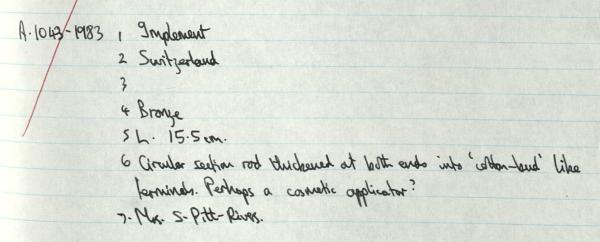 A.1043-1983 1 Implement
2 Switzerland
3
4 Bronze
5 L. 15.5cm.
6 Circular section rod thickened at both ends into 'cotton-bud' like
terminals. Perhaps a cosmetic applicator?
7. Mrs. S-Pitt-Rivers.